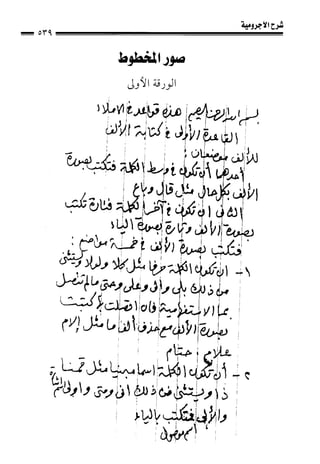 شرح الآجرومية
٥٣٩
صور المخطوط
الورقة الأولى
بسم الله الرحمن الرحيم هذه قواعد في الاملاء
القاعدة الأولى في كتابة الألف
للألف موضعان:
أحدهما أن تكون في وسط الكلمة فتكتب بصورة
الألف بكل حال مثل قال وباع
الثاني ان تكون في آخر الكلمة فتارة تكتب
بصورة الألف وتارة بصورة الياء
فتكتب بصورة الألف في خمسة مواضع:
١- ان تكون الكلمة حرفا مثل كلا ولولا ويستثنى
من ذلك بلى والى وعلى وحتى مالم تتصل
بما الاستفهامية فان اتصلت بها كتبت
بصورة الألف مع حذف ألف ما مثل إلام
علام، حتام
٢- أن تكون الكلمة اسما مبنيا مثل قمنا
ذا ويستثنى من ذلك انى ومتى واولى
والألى فتكتب بالياء
اسم موصول